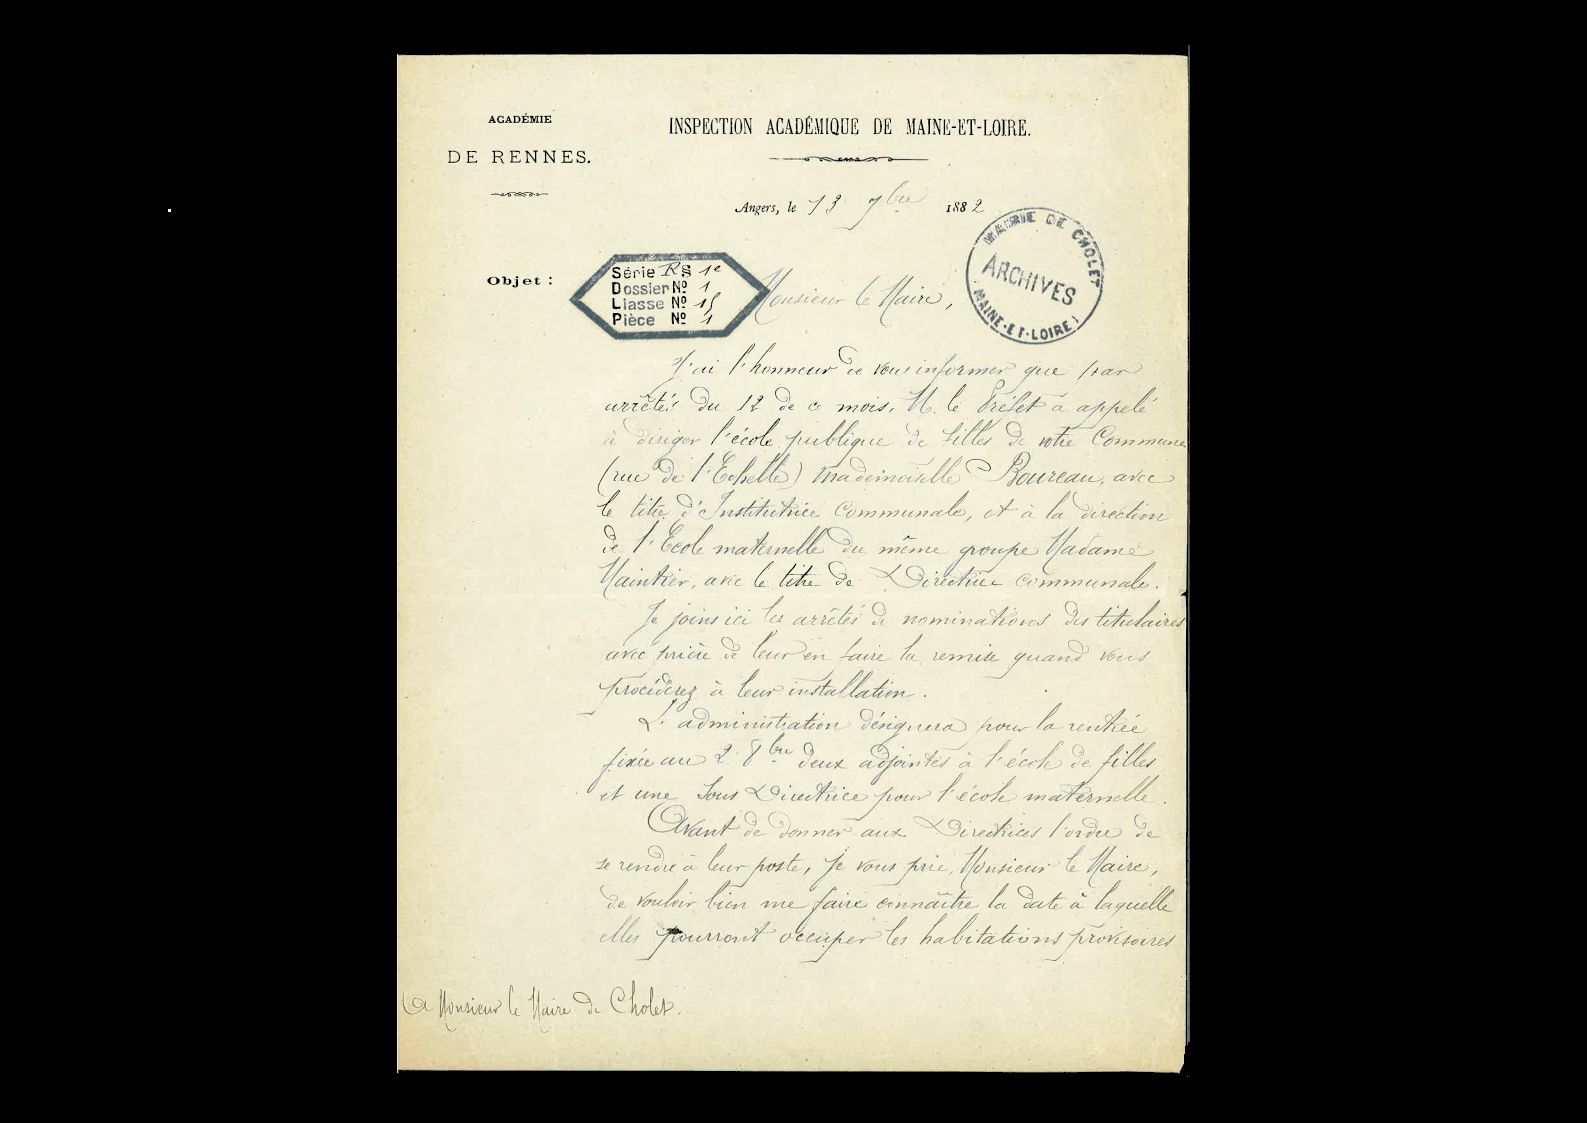 ACADÉMIE
DE RENNES.
INSPECTION ACADÉMIQUE DE MAINE-ET-LOIRE.
Angers, le 13 7bre 1882
MAIRIE DE CHOLET
ARCHIVES
(MAINE-ET-LOIRE)
Objet :
Série RS 1e
Dossier Nº 1
Liasse Nº 15
Pièce Nº 1
Monsieur le Maire,
J'ai l'honneur de vous informer que par
arrêtés du 12 de ce mois, M. le Préfet a appelé
à diriger l'école publique de filles de votre Commune
(rue de l'Echelle) Mademoiselle Boureau, avec
le titre d'Institutrice Communale, et à la direction
de l'Ecole maternelle du même groupe Madame
Maintier, avec le titre de Directrice communale.
Je joins ici les arrêtés de nominations des titulaires
avec prière de leur en faire la remise quand vous
procéderez à leur installation.
L'administration désignera pour la rentrée
fixée au 2 8bre deux adjointes à l'école de filles
et une Sous Directrice pour l'école maternelle.
Avant de donner aux Directrices l'ordre de
se rendre à leur poste, je vous prie, Monsieur le Maire,
de vouloir bien me faire connaître la date à laquelle
elles pourront occuper les habitations provisoires
A Monsieur le Maire de Cholet.